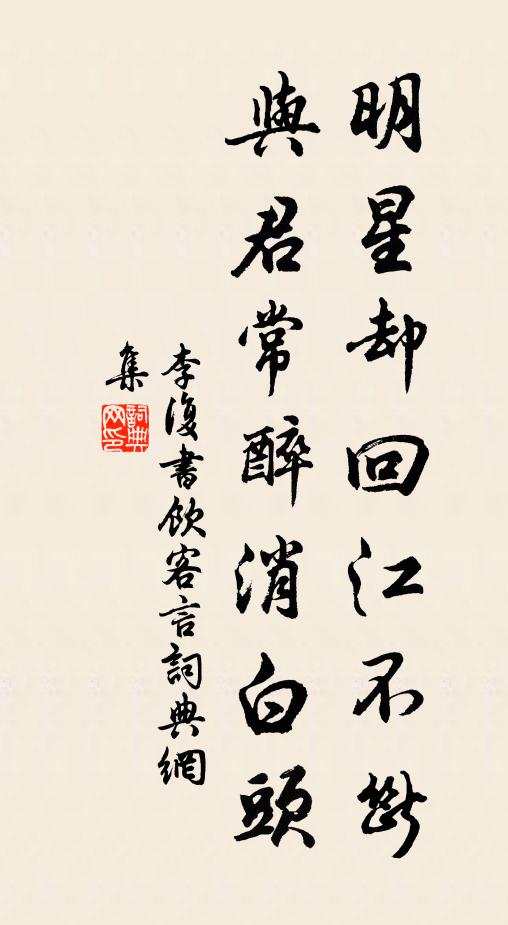 明星却回江不斷
與君常醉消白頭
李復書飲客言詞典網
集
詞典
网印